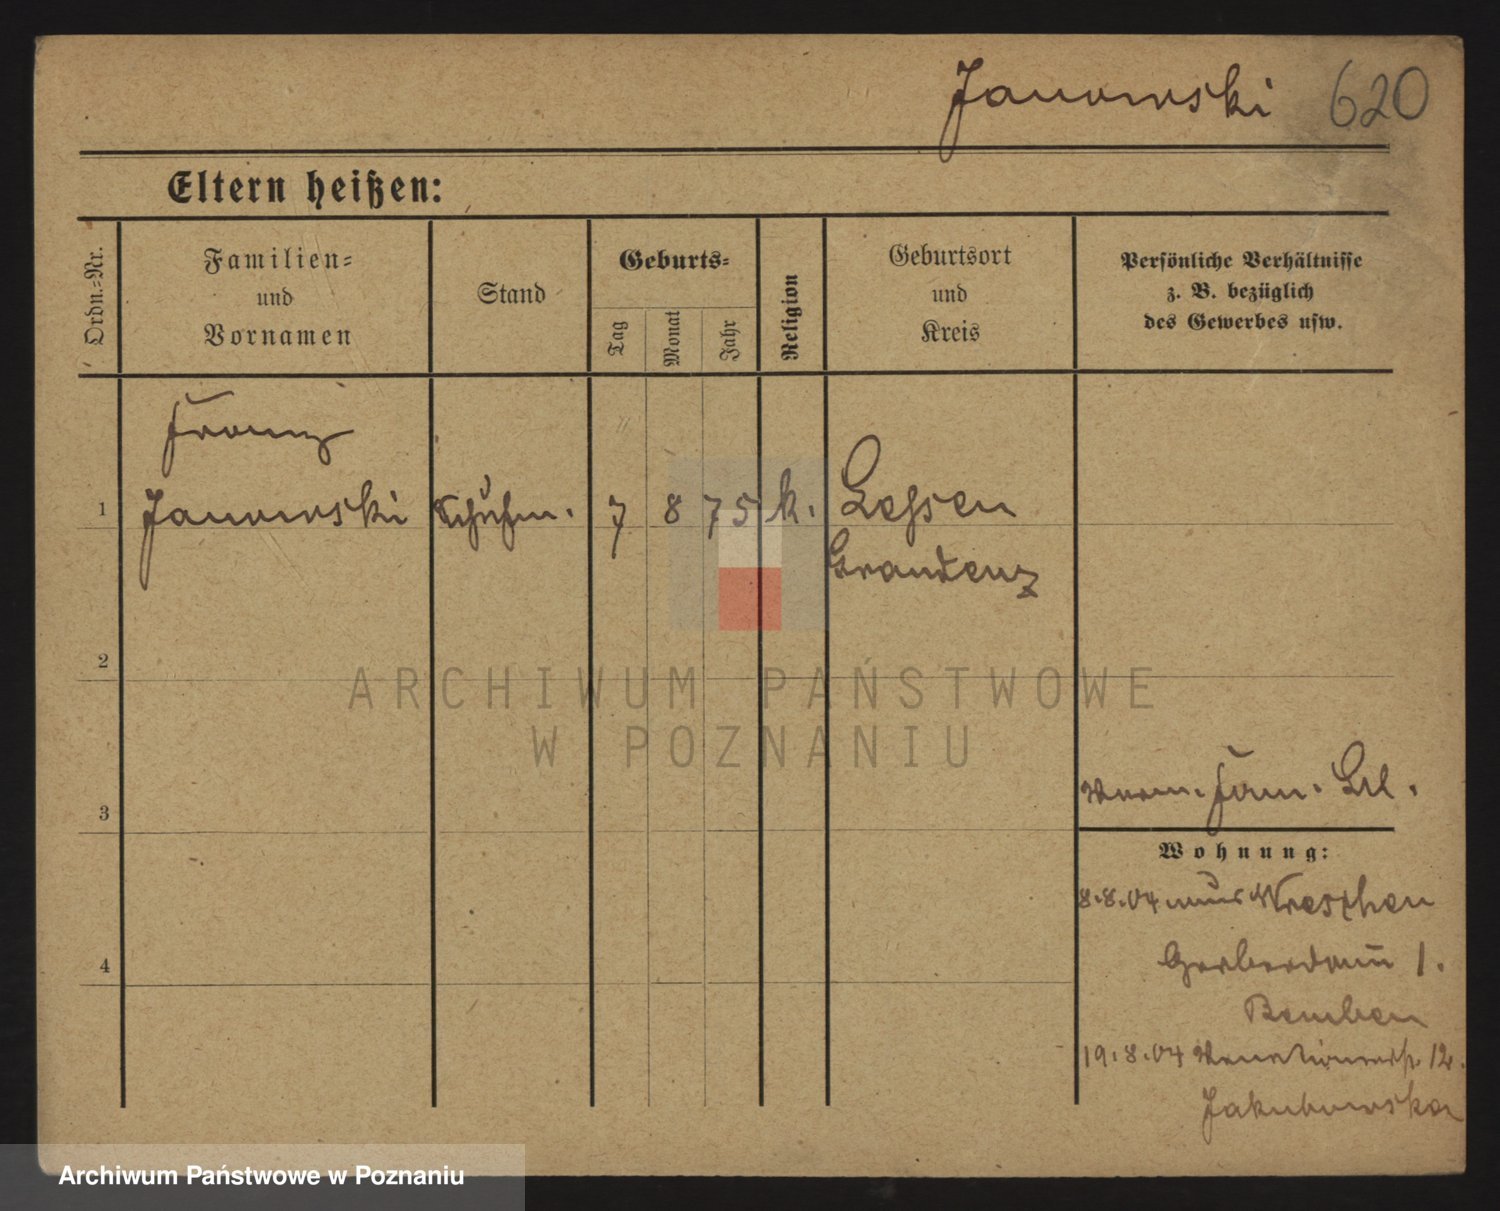 Janowski 620
Eltern heißen:
Ordn.-Nr.
Familien-
und
Vornamen
Stand
Geburts-
Tag
Monat
Jahr
Religion
Geburtsort
und
Kreis
Persönliche Verhältnisse
z. B. bezüglich
des Gewerbes usw.
Franz
1 Janowski Schuhm. 7 8 75 k. Lessen
Graudenz
2
ARCHIWUM PAŃSTWOWE
W POZNANIU
3
Fam.
Wohnung:
8.8.04 aus Wreschen
4
Gerberdamm 1.
19.8.04 12.
Jakubowska
Archiwum Państwowe w Poznaniu